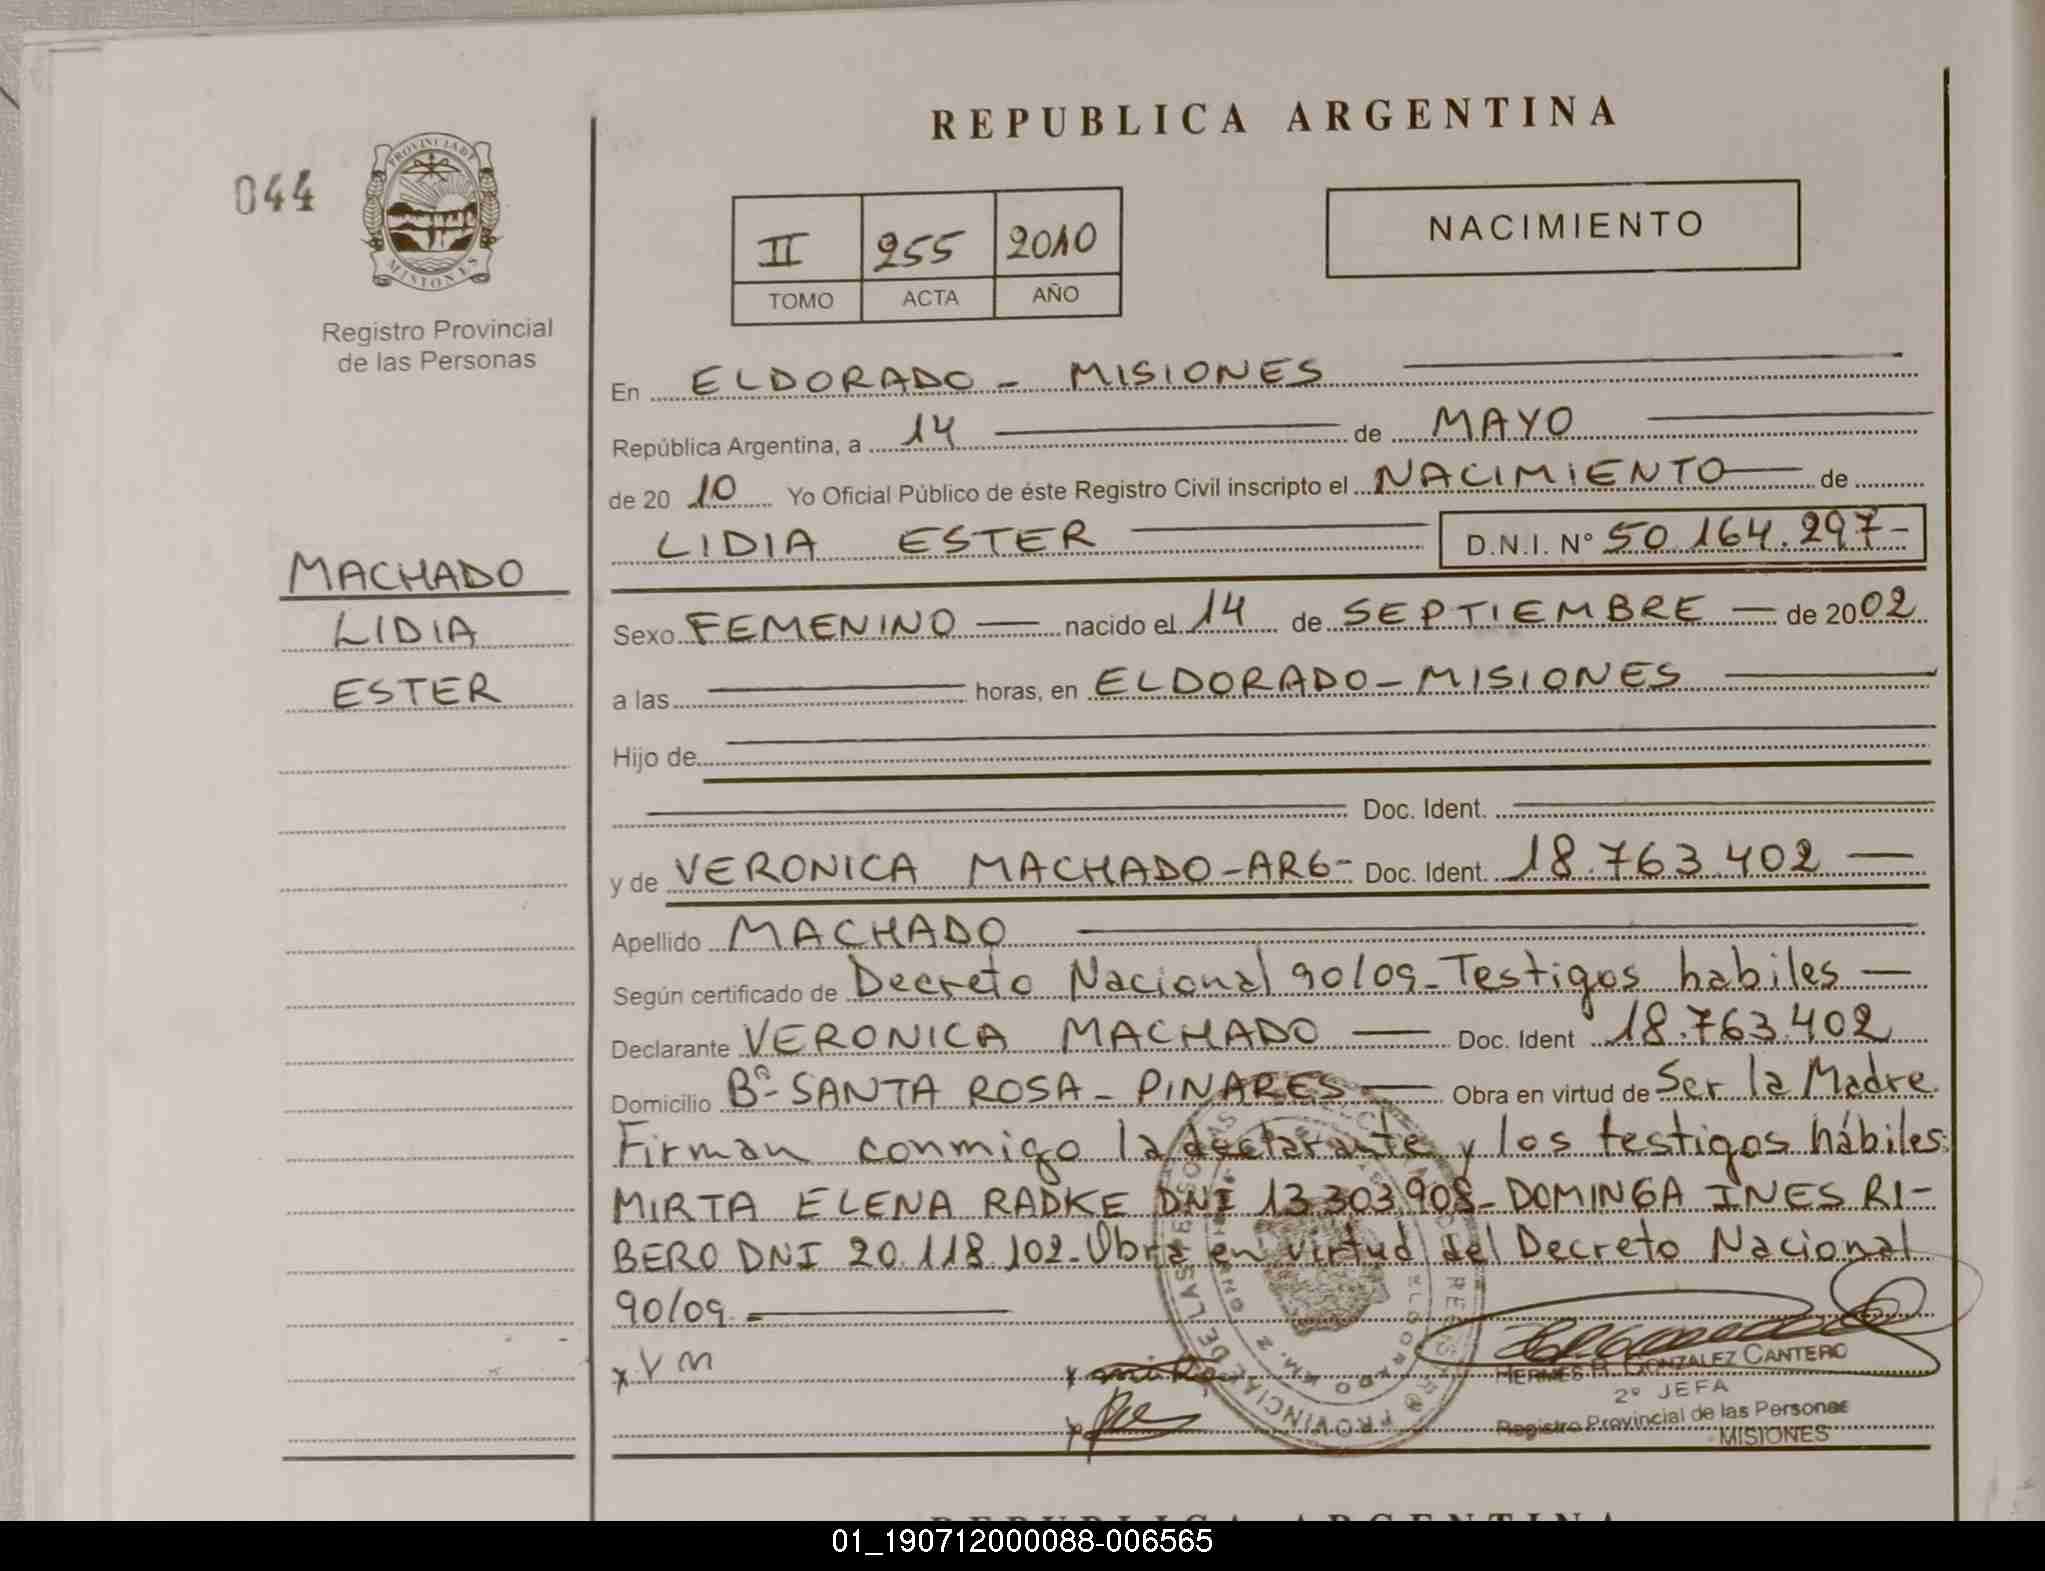 REPUBLICA ARGENTINA
044
PROVINCIA DE
MISIONES
Registro Provincial
de las Personas
II 255 2010
TOMO ACTA AÑO
NACIMIENTO
MACHADO
LIDIA
ESTER
En ELDORADO - MISIONES
República Argentina, a 14 de MAYO
de 2010 Yo Oficial Público de éste Registro Civil inscripto el NACIMIENTO de
LIDIA ESTER D.N.I. Nº 50.164.297-
Sexo FEMENINO nacido el 14 de SEPTIEMBRE de 2002
a las horas, en ELDORADO-MISIONES
Hijo de
Doc. Ident.
y de VERONICA MACHADO-ARG- Doc. Ident. 18.763.402
Apellido MACHADO
Según certificado de Decreto Nacional 90/09-Testigos habiles
Declarante VERONICA MACHADO Doc. Ident 18.763.402
Domicilio Bº-SANTA ROSA - PINARES Obra en virtud de Ser la Madre.
Firman conmigo la declarante y los testigos hábiles:
MIRTA ELENA RADKE DNI 13.303.908-DOMINGA INES RI-
BERO DNI 20.118.102-Obra en virtud del Decreto Nacional
90/09.
x V M
HERMES R. GONZALEZ CANTERO
2º JEFA
Registro Provincial de las Personas
MISIONES
REPUBLICA ARGENTINA
01_190712000088-006565